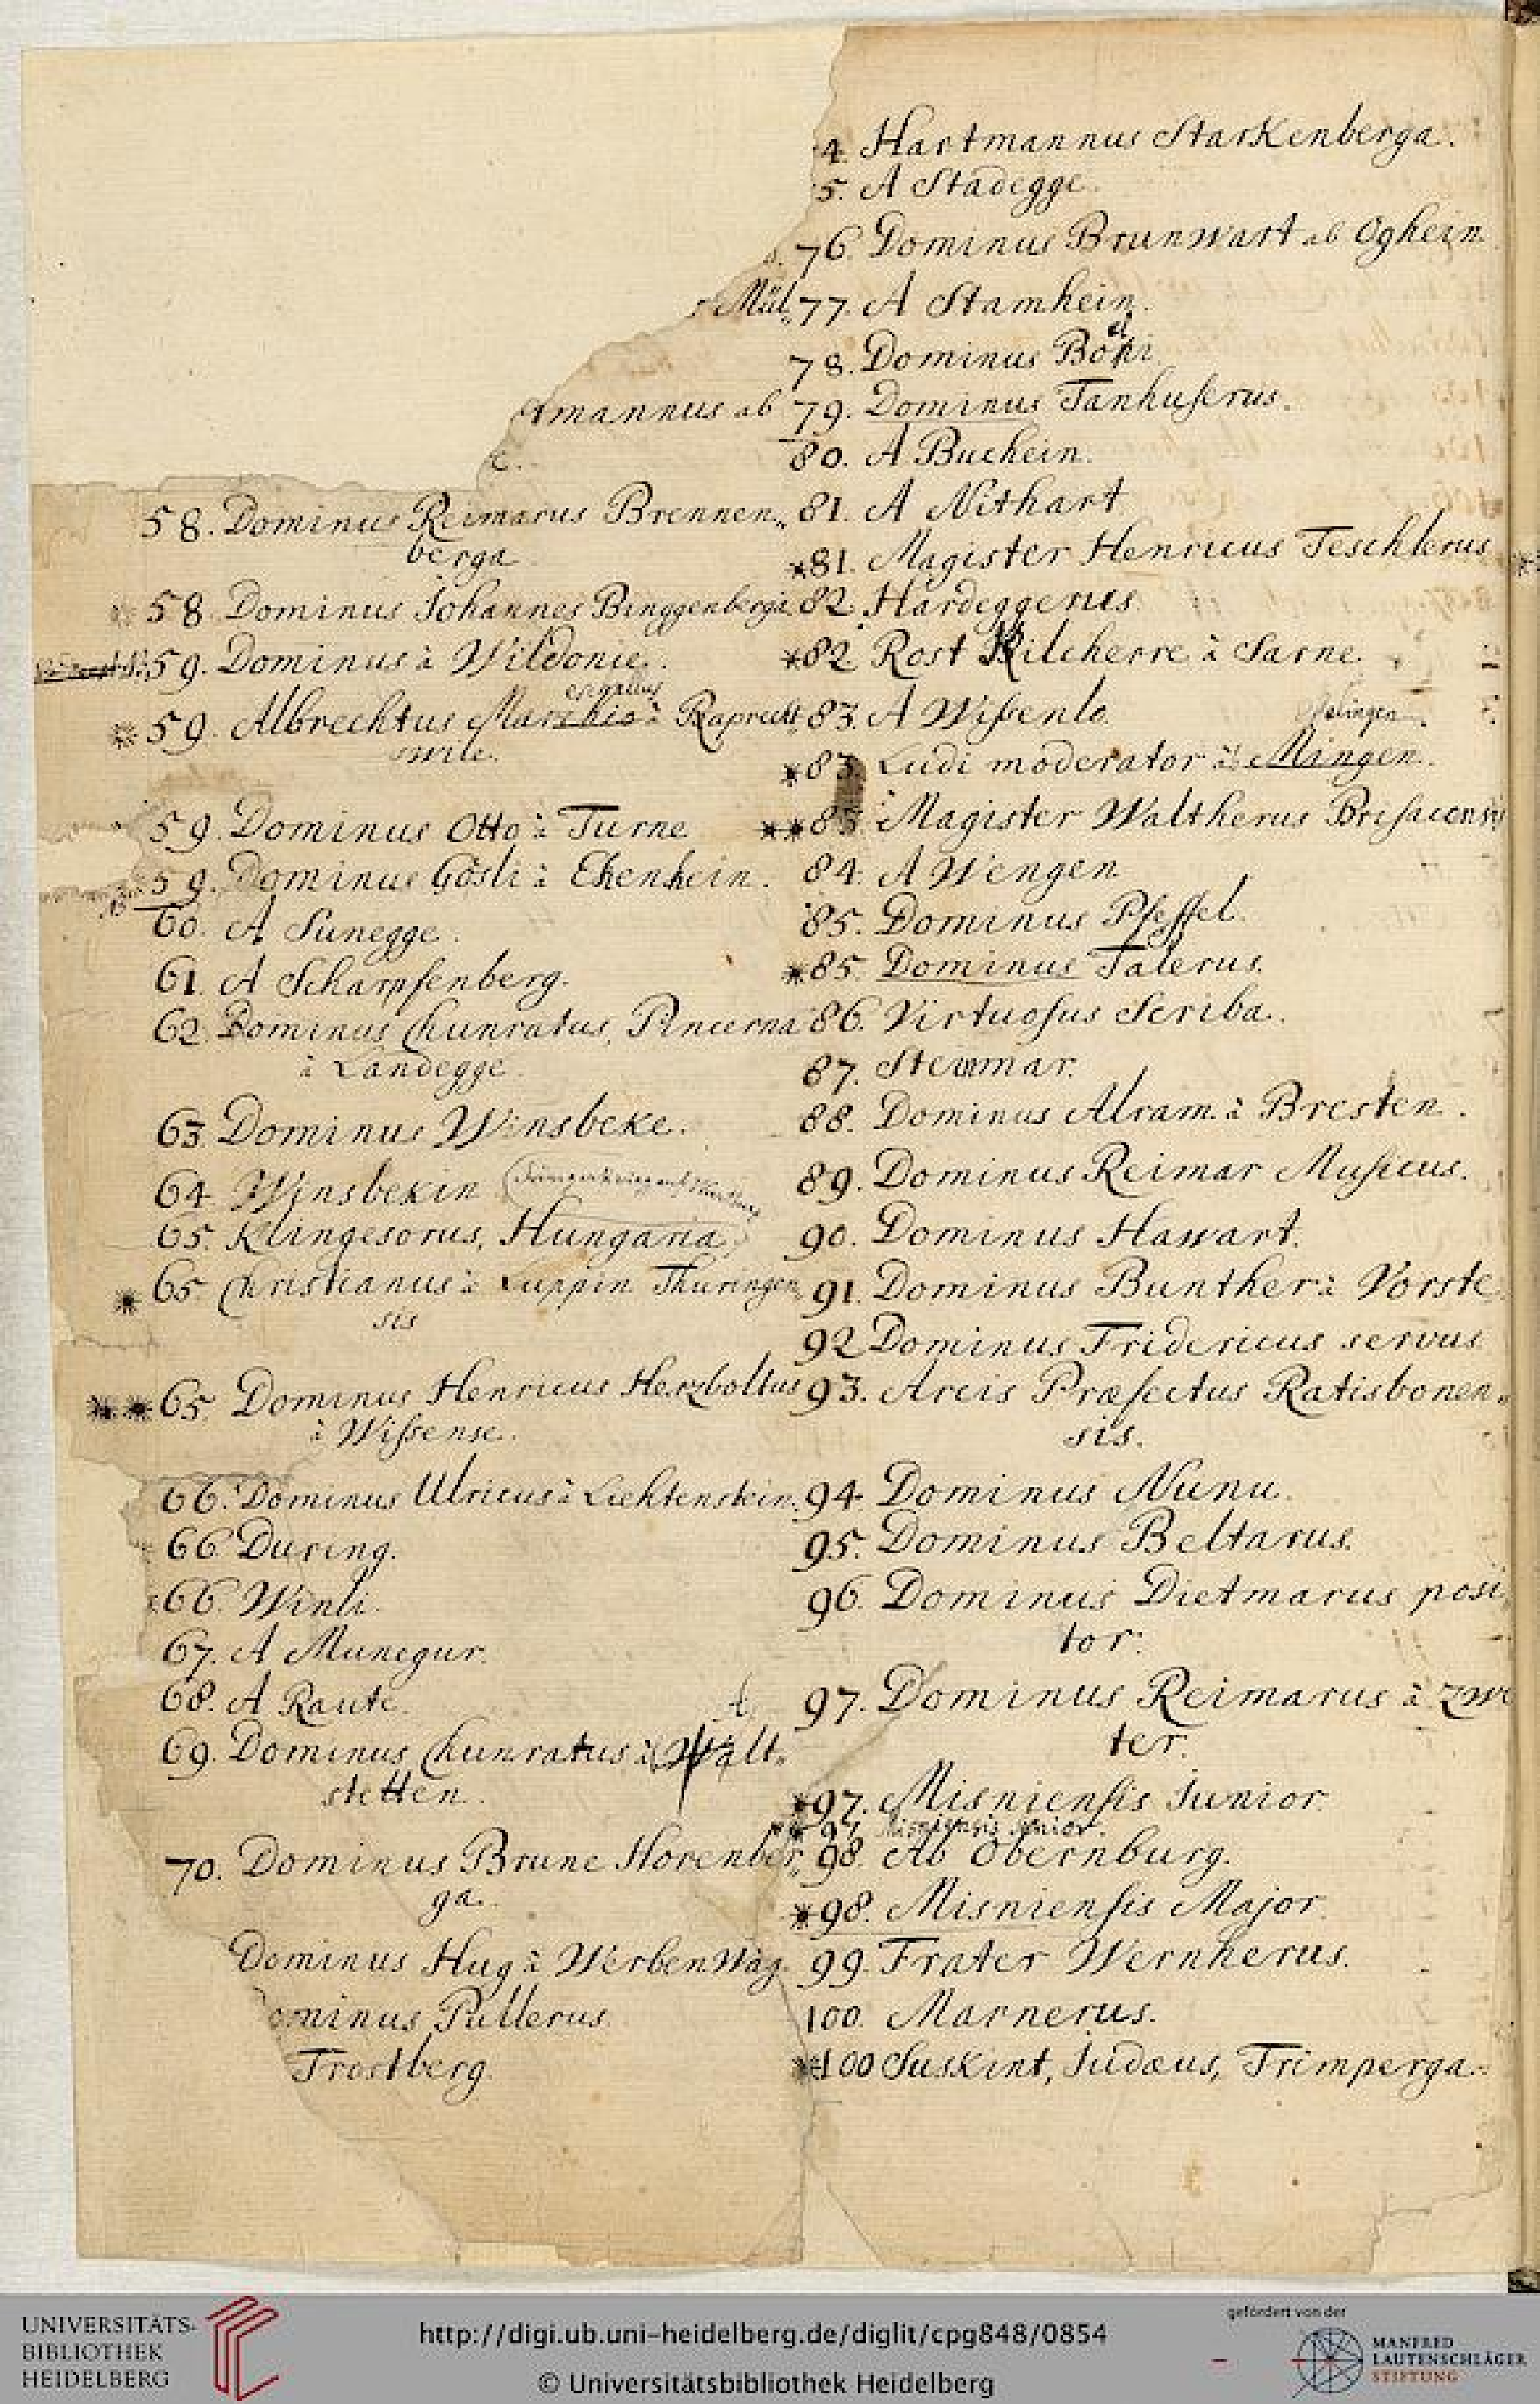 Mül„
tmannus ab
58. Dominus Reimarus Brennen„
berga
58. Dominus Johannes Binggenberga
59. Dominus à Wildonie.
escallus
59. Albrechtus Marchio à Raprecht„
swile.
59. Dominus Otto à Turne
59. Dominus Gösli à Ehenhein.
60. A Sunegge.
61. A Scharpfenberg.
62. Dominus Chunratus, Pincerna
à Landegge.
63. Dominus Winsbeke.
64. Winsbekin
65. Klingesorus, Hungaria
* 65 Christianus à Luppin Thuringen„
sis
** 65 Dominus Henricus Herzboltus
à Wissense.
66. Dominus Ulricus à Liechtenstein.
66. During.
66. Winli.
67. A Munegur.
68. A Raute.
A
69. Dominus Chunratus à Walt„
stetten.
70. Dominus Brune Horenber„
ga.
Dominus Hug à Werbenwag.
ominus Pullerus
Trostberg.
4. Hartmannus Starkenberga.
5. A Stadegge.
76. Dominus Brunwart ab Oghein
77. A Stamhein.
78. Dominus
79. Dominus Tanhuserus.
80. A Buchein.
81. A Nithart
*81. Magister Henricus Teschlerus
82. Hardeggerus
*82. Rost Kilcherre à Sarne.
83. A Wissenlo
selingen
*83. Ludi moderator à Mingen.
**83 Magister Waltherus Brisacensis
84. A Wengen
85. Dominus Pfeffel.
*85. Dominus Talerus.
86. Virtuosus Scriba.
87. Steinmar.
88. Dominus Alram à Bresten.
89. Dominus Reimar Musicus.
90. Dominus Hawart.
91. Dominus Bunther à Vorste
92 Dominus Fridericus servus
93. Arcis Præfectus Ratisbonen„
sis.
94. Dominus Nunu.
95. Dominus Beltarus.
96. Dominus Dietmarus posi
tor.
97. Dominus Reimarus à Zwe
ter.
*97. Misniensis Junior.
** 97. Misniensis senior.
98. Ab Obernburg.
*98. Misniensis Major.
99. Frater Wernherus.
100. Marnerus.
*100 Suskint, Judæus, Trimperga.
UNIVERSITÄTS-
BIBLIOTHEK
HEIDELBERG
http://digi.ub.uni-heidelberg.de/diglit/cpg848/0854
© Universitätsbibliothek Heidelberg
gefördert von der
MANFRED
LAUTENSCHLÄGER
STIFTUNG